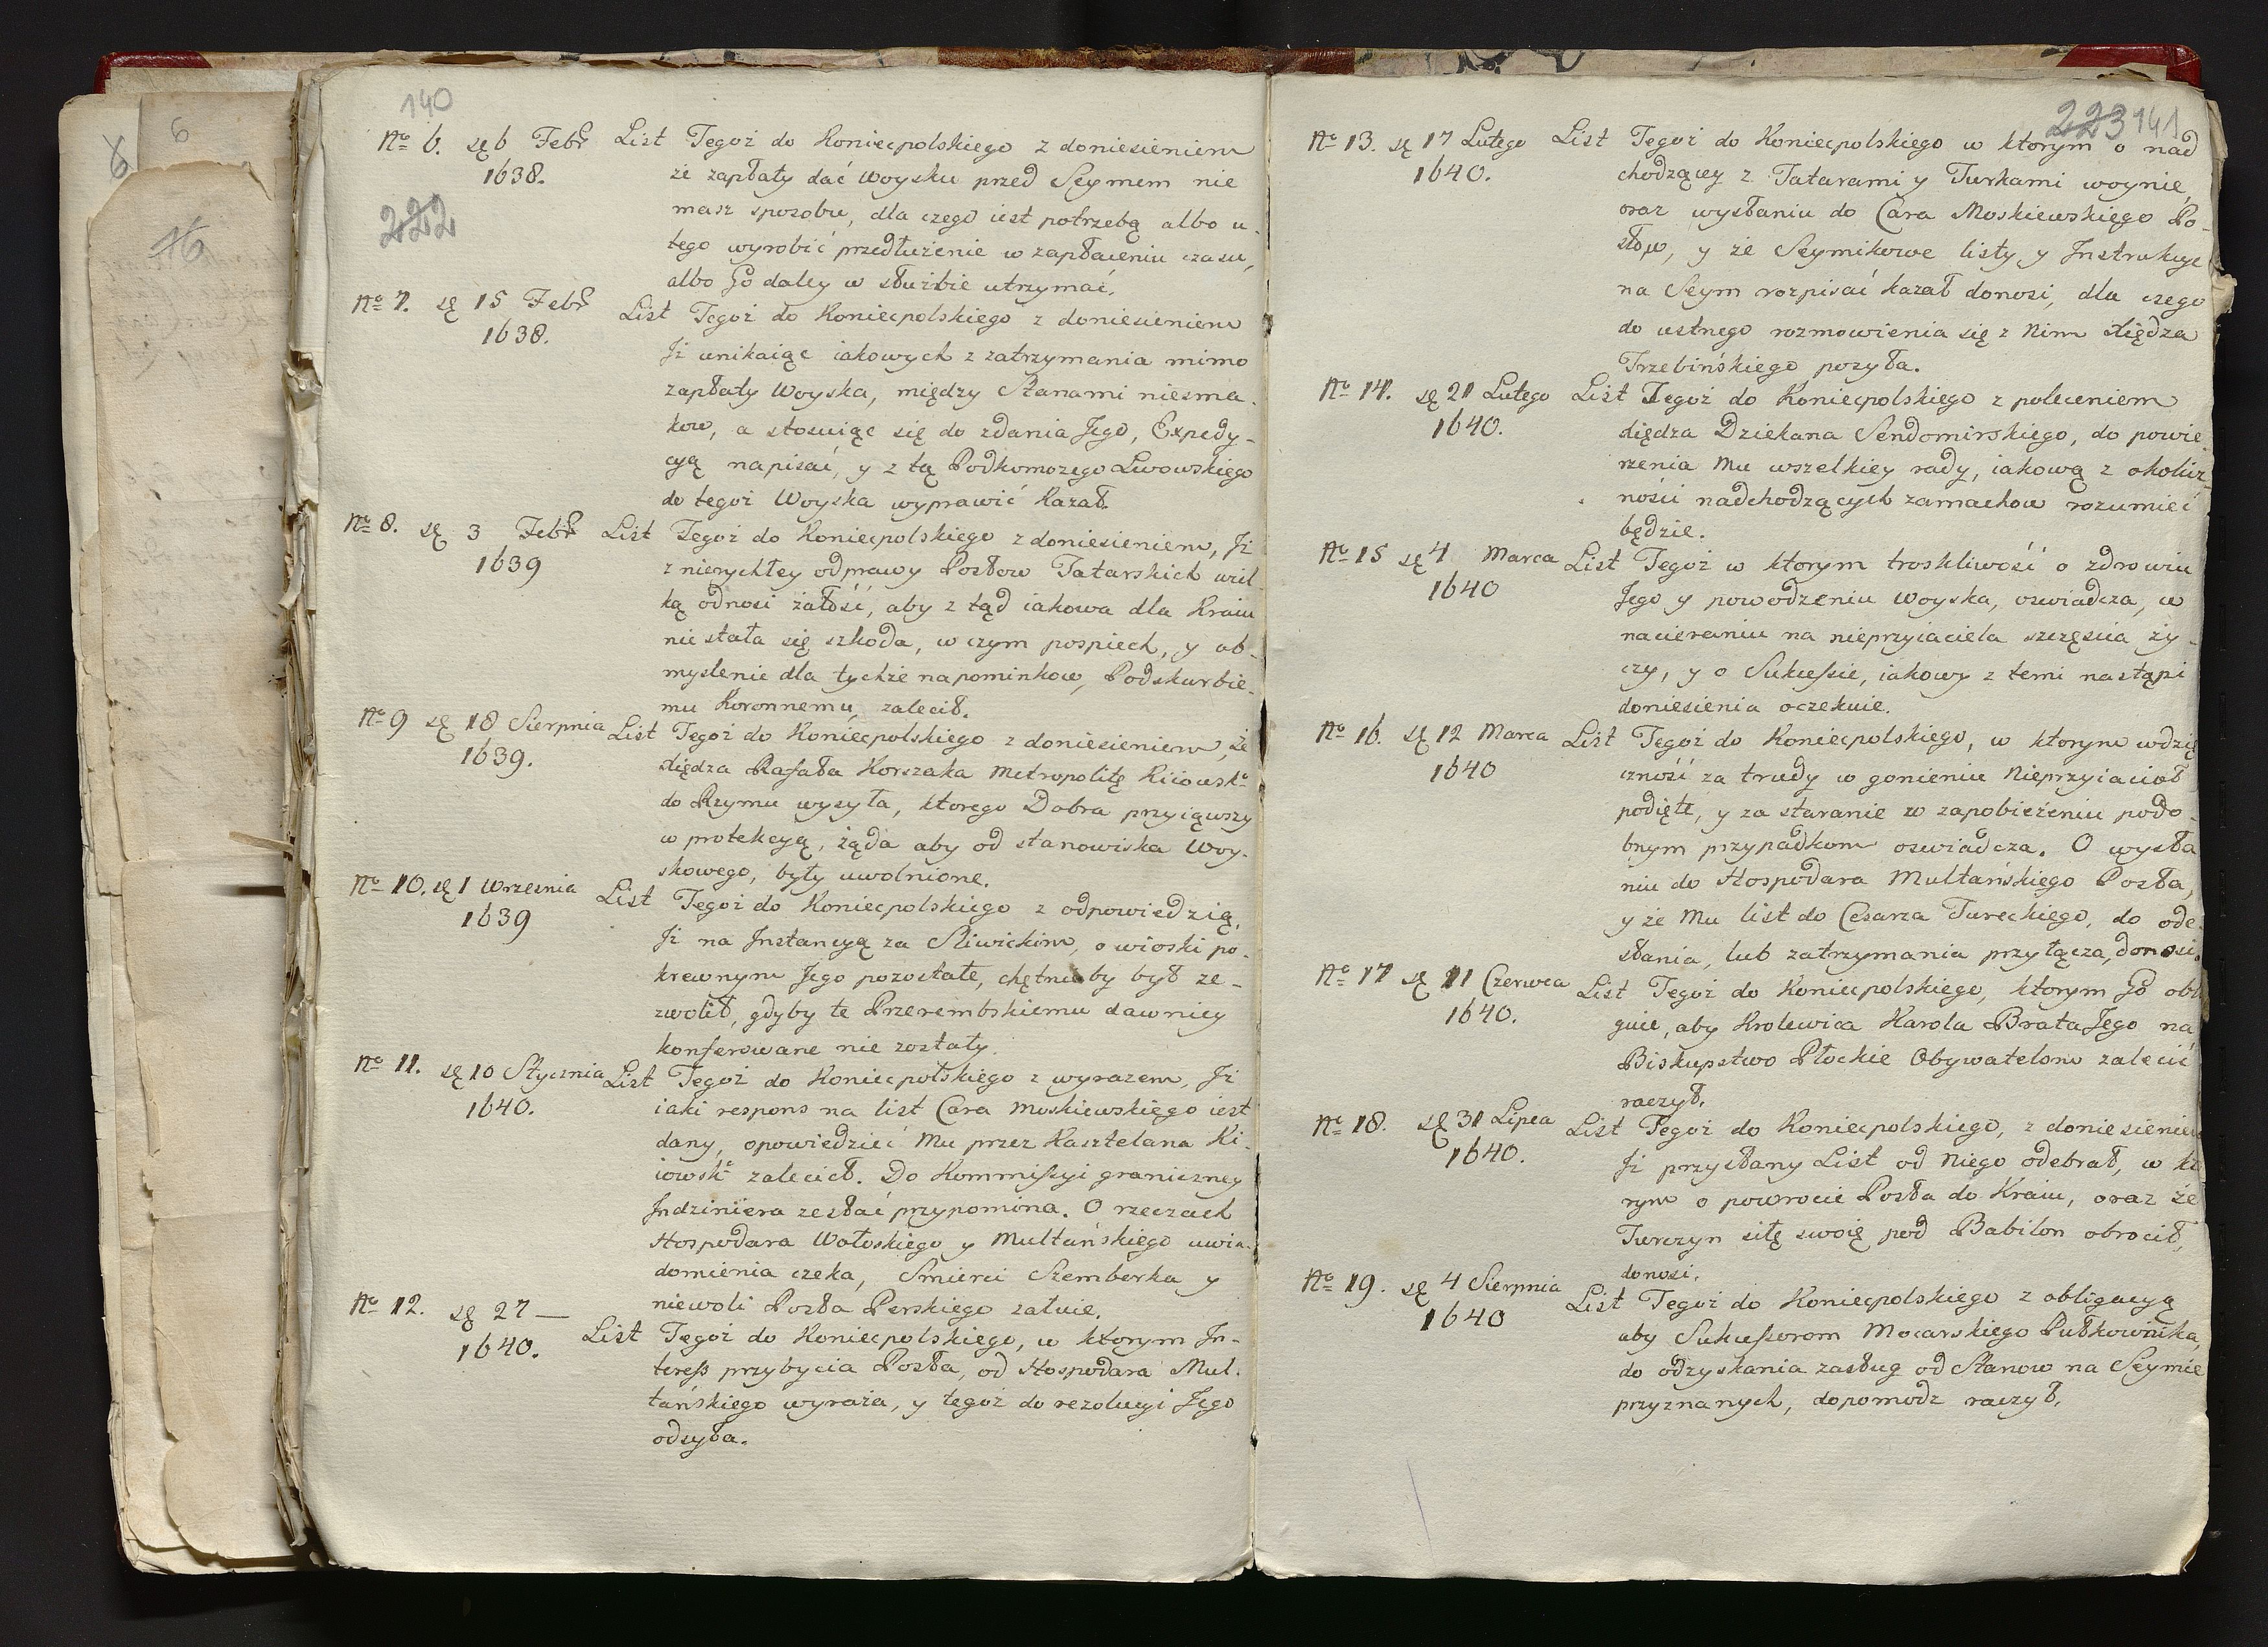 140
№ 6. sę 6 Febr 1638. List Tegoż do Koniecpolskiego z doniesieniem
że zapłaty dać woysku przed Seymem nie
masz sposobu, dla czego iest potrzebą albo u-
tego wyrobić przedłużenie w zapłaceniu czasu,
albo Go daley w służbie utrzymać.
222
№ 7. sę 15 Febr 1638. List Tegoż do Koniecpolskiego z doniesieniem
Jż unikaiąc iakowych z zatrzymania mimo
zapłaty Woyska, między Stanami niesma-
kow, a stosuiąc się do zdania Jego, Expedy-
cyą napisać, y z tą Podkomorzego Lwowskiego
do tegoż Woyska wyprawić kazał.
№ 8. sę 3 Febr 1639 List Tegoż do Koniecpolskiego z doniesieniem, Jż
z nierychłey odprawy Posłow Tatarskich wiel
ką odnosi żałość, aby z tąd iakowa dla Kraiu
nie stała się szkoda, w czym pospiech, y ob-
myslenie dla tychże napominkow, Podskarbie-
mu Koronnemu zalecił.
№ 9 sę 18 Sierpnia 1639. List Tegoż do Koniecpolskiego z doniesieniem, że
Xiędza Rafała Korszaka Metropolitę Kiiowsk°
do Rzymu wysyła, ktorego Dobra przyiąwszy
w protekcyą, żąda aby od stanowiska Woy-
skowego, były uwolnione.
№ 10. sę 1 Września 1639 List Tegoż do Koniecpolskiego z odpowiedzią,
Jż na Instancyą za Sliwickim, o wioski po-
krewnym Jego pozostałe, chętnieby był ze-
zwolił, gdyby te Przerembskiemu dawniey
konferowane nie zostały.
№ 11. sę 10 Stycznia 1640. List Tegoż do Koniecpolskiego z wyrazem, Jż
iaki respons na list Cara Moskiewskiego iest
dany, opowiedzieć Mu przez Kasztelana Ki-
iowsk° zalecił. Do Kommissyi graniczney
Indziniera zesłać przypomina. O rzeczach
Hospodara Wołoskiego y Multańskiego uwia-
domienia czeka, Smierci Szemberka y
niewoli Posła Perskiego żałuie.
№ 12. sę 27 — 1640. List Tegoż do Koniecpolskiego, w ktorym In-
teress przybycia Posła, od Hospodara Mul-
tańskiego wyraża, y tegoż do rezolucyi Jego
odsyła.
223 141
№ 13. sę 17 Lutego 1640. List Tegoż do Koniecpolskiego w ktorym o nad
chodzącey z Tatarami y Turkami woynie,
oraz wysłaniu do Cara Moskiewskiego Po-
słow, y że Seymikowe listy y Instrukcye
na Seym rozpisać kazał donosi, dla czego
do ustnego rozmowienia się z Nim Xiędza
Trzebińskiego posyła.
№ 14. sę 21 Lutego 1640. List Tegoż do Koniecpolskiego z poleceniem
Xiędza Dziekana Sendomirskiego, do powie
rzenia Mu wszelkiey rady, iakową z okolicz-
ności nadchodzących zamachow rozumieć
będzie.
№ 15 sę 4 Marca 1640 List Tegoż w ktorym troskliwość o zdrowiu
Jego y powodzeniu Woyska, oswiadcza, w
nacieraniu na nieprzyiaciela szczęscia ży-
czy, y o Sukcessie, iakowy z temi nastąpi
doniesienia oczekuie.
№ 16. sę 12 Marca 1640 List Tegoż do Koniecpolskiego, w ktorym wdzię
czność za trudy w gonieniu Nieprzyiacioł
podięte, y za staranie w zapobieżeniu podo-
bnym przypadkom oswiadcza. O wysła
niu do Hospodara Multańskiego Posła,
y że Mu list do Cesarza Tureckiego, do ode-
słania, lub zatrzymania przyłącza, donosi.
№ 17 sę 11 Czerwca 1640. List Tegoż do Koniecpolskiego, ktorym Go obli
guie, aby Krolewica Karola Brata Jego na
Biskupstwo Płockie Obywatelom zalecić
raczył.
№ 18. sę 31 Lipca 1640. List Tegoż do Koniecpolskiego, z doniesieniem
Jż przysłany List od Niego odebrał, w kto
rym o powrocie Posła do Kraiu, oraz że
Turczyn siłę swoię pod Babilon obrocił,
donosi.
№ 19. sę 4 Sierpnia 1640 List Tegoż do Koniecpolskiego z obligacyą
aby Sukcessorom Mocarskiego Pułkownika,
do odzyskania zasług od Stanow na Seymie
przyznanych, dopomodz raczył.